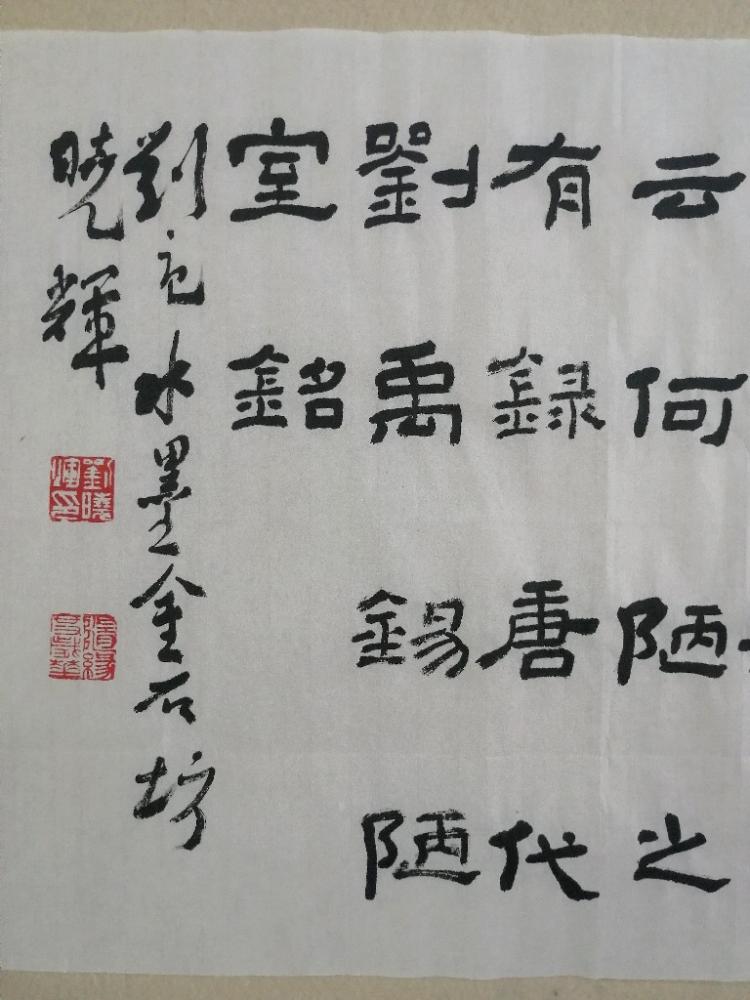 云何陋之
有録唐代
劉禹錫陋
室銘
劉水墨金石坊
曉輝
劉曉
煇印
隨緣